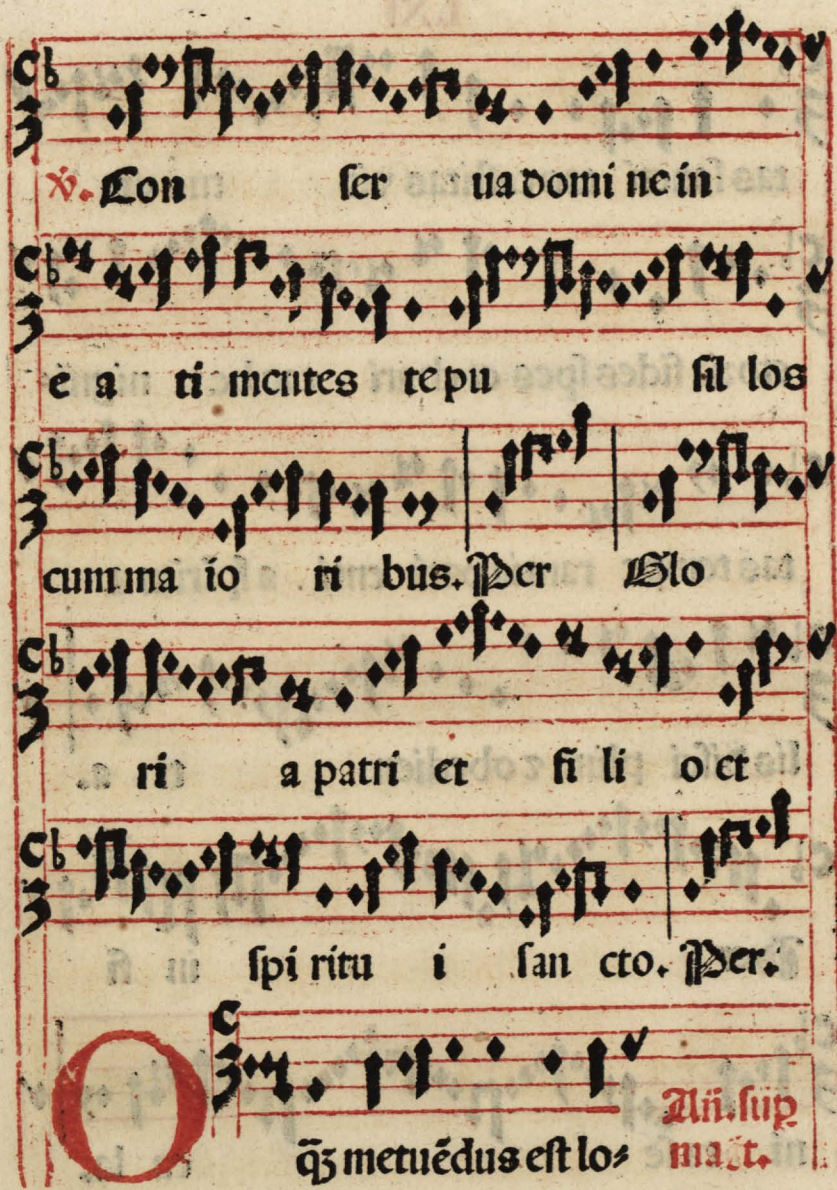 ℣. Con ser ua domi ne in
e a ti mentes te pu sil los
cum ma io ri bus. Per Glo
ri a patri et fi li o et
spi ritu i san cto. Per.
O q̃ꝫ metuẽdus est lo⸗
Añ. sup
ma t.